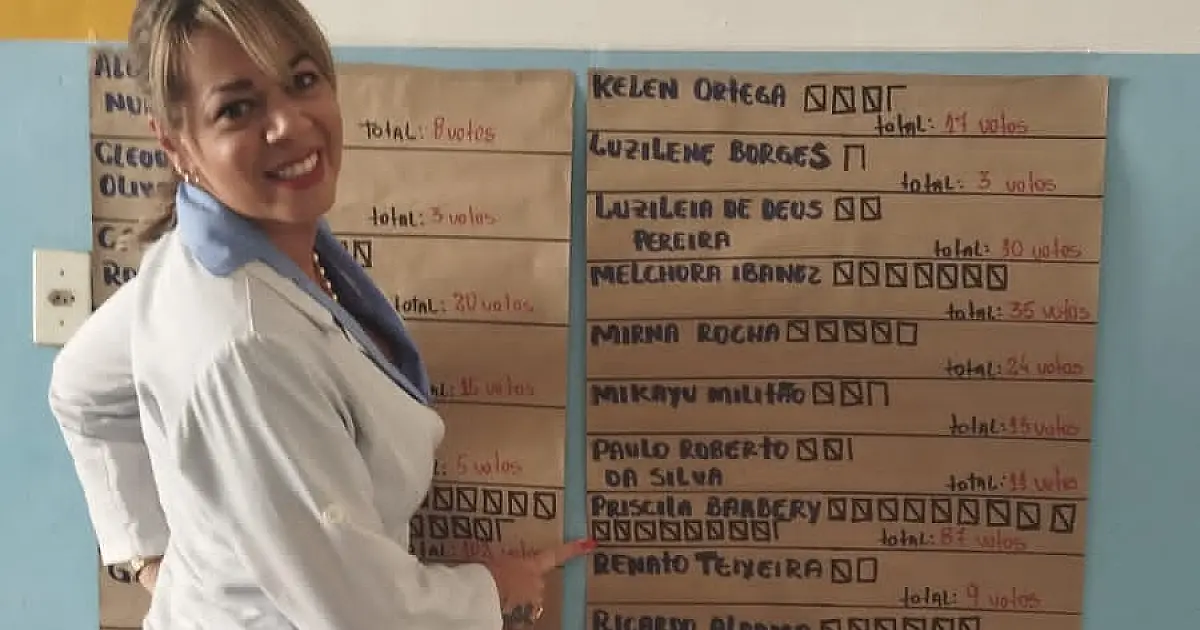 total: 8 votos
total: 3 votos
total: 20 votos
15 votos
5 votos
KELEN ORTEGA
total: 17 votos
LUZILENE BORGES
total: 3 votos
LUZILEIA DE DEUS
PEREIRA
total: 10 votos
MELCHORA IBANEZ
total: 35 votos
MIRNA ROCHA
total: 24 votos
MIKAYU MILITÃO
total: 15 votos
PAULO ROBERTO
DA SILVA
total: 11 voto
PRISCILA BARBERY
total: 87 votos
RENATO TEIXEIRA
total: 9 votos
RICARDO